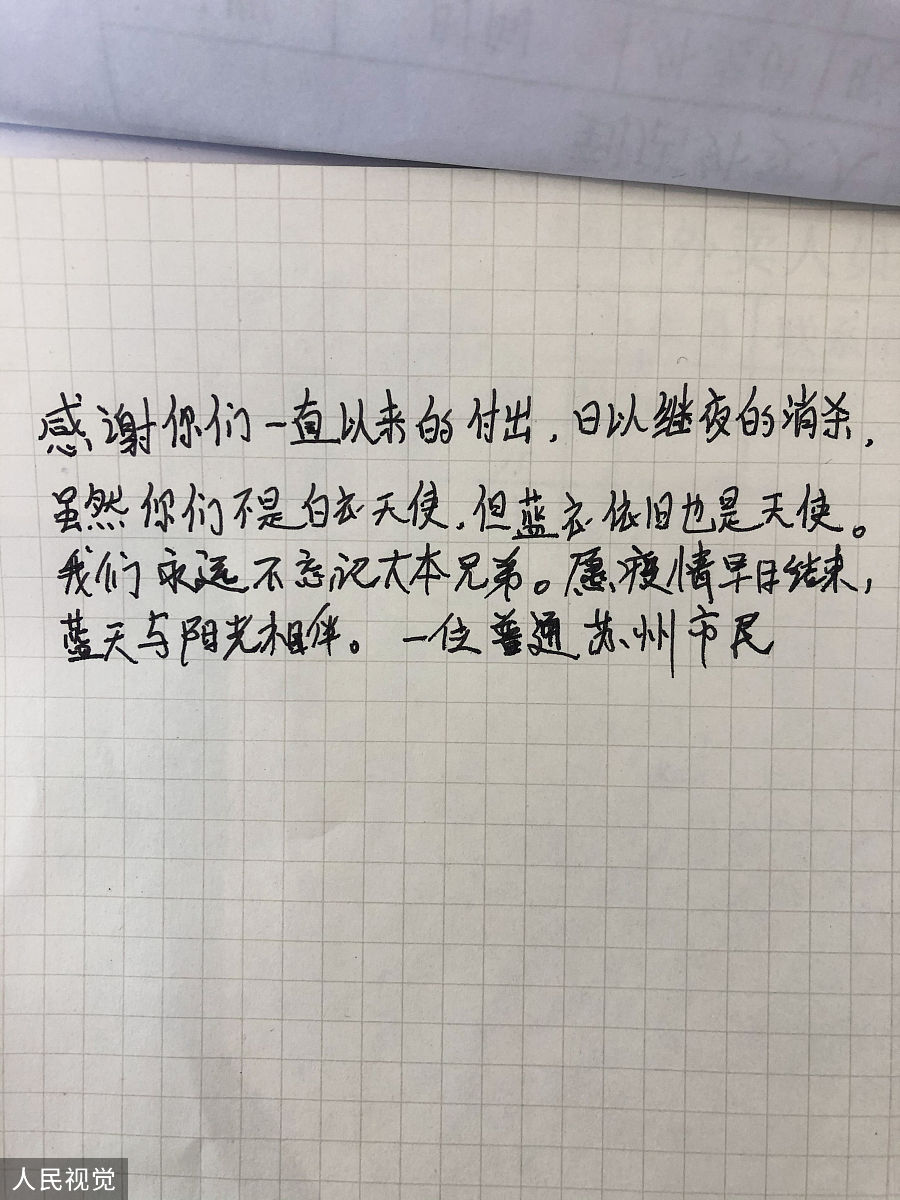 感谢你们一直以来的付出，日以继夜的消杀，
虽然你们不是白衣天使，但蓝衣依旧也是天使。
我们永远不忘记大本兄弟。愿疫情早日结束，
蓝天与阳光相伴。 一位普通苏州市民
人民视觉